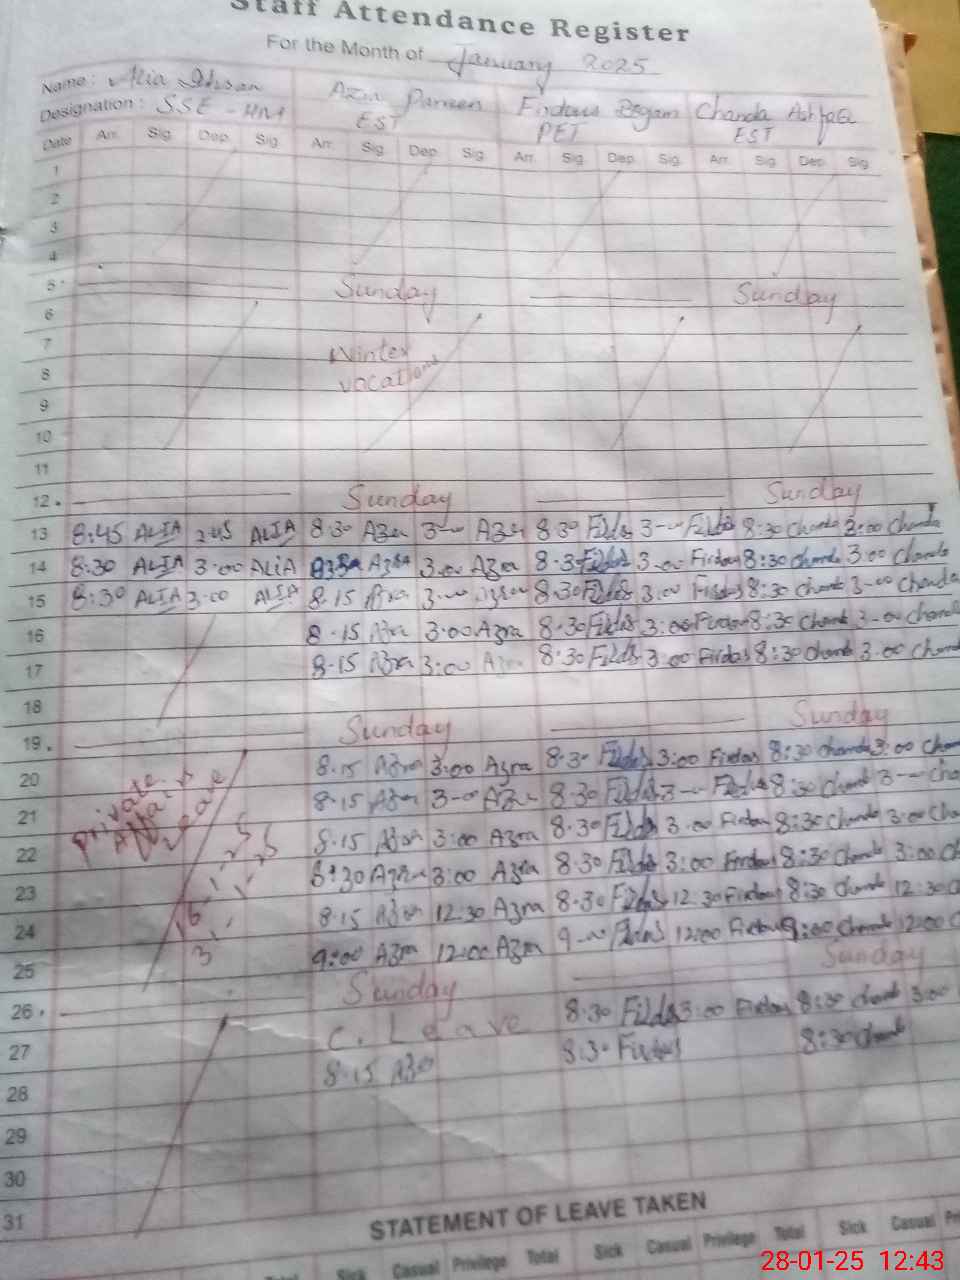 Staff Attendance Register
For the Month of January 2025
Name: Alia Azra Parveen Firdous Begam Chanda Ashfaq
Designation: SSE EST PET EST
Date Arr. Sig. Dep. Sig. Arr. Sig. Dep. Sig. Arr. Sig. Dep. Sig. Arr. Sig. Dep. Sig.
1
2
3
4
5 Sunday Sunday
6
7 Winter
8 vocations
9
10
11
12 Sunday Sunday
13 8:45 ALIA 2:45 ALIA 8:30 Azra 3-00 Azra 8:30 Firdos 3-00 Firdos 8:30 Chanda 3:00 Chanda
14 8:30 ALIA 3:00 ALIA Azra 3:00 Azra 8:30 Firdos 3:00 Firdos 8:30 Chanda 3:00 Chanda
15 8:30 ALIA 3:00 ALIA 8.15 Azra 3:00 8.30 Firdos 3:00 Firdos 8:30 Chanda 3-00 Chanda
16 8.15 Azra 3:00 Azra 8.30 Firdos 3:00 Firdos 8:30 Chanda 3-00 Chanda
17 8.15 Azra 3:00 Azra 8.30 Firdos 3:00 Firdos 8:30 Chanda 3:00 Chanda
18
19 Sunday Sunday
20 8.15 Azra 3:00 Azra 8.30 Firdos 3:00 Firdos 8:30 Chanda 3:00
21 Private 8.15 Azra 3-00 Azra 8.30 Firdos 3-00 Firdos 8:30 Chanda 3-00
22 Affairs 8.15 Azra 3:00 Azra 8.30 Firdos 3:00 Firdos 8:30 Chanda 3:00
23 Leave 8:30 Azra 3:00 Azra 8.30 Firdos 3:00 Firdos 8:30 Chanda 3:00
24 8.15 Azra 12:30 Azra 8.30 Firdos 12:30 Firdos 8:30 Chanda 12:30
25 9:00 Azra 12:00 Azra 9-00 Firdos 12:00 Firdos 9:00 Chanda 12:00
26 Sunday Sunday
27 C. Leave 8.30 Firdos 3:00 Firdos 8:30 Chanda 3:00
28 8.15 Azra 8.30 Firdos 8:30 Chanda
29
30
31
STATEMENT OF LEAVE TAKEN
Total Sick Casual Privilege Total Sick Casual Privilege Total Sick Casual
28-01-25 12:43